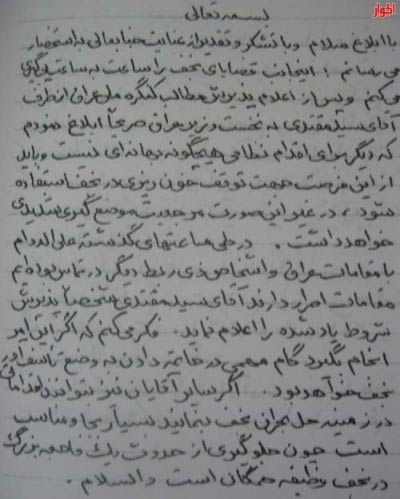 اخوار
بسمه تعالی
با ابلاغ سلام و با تشکر و تقدیر از عنایت جنابعالی به استحضار
می رسانم : اینجانب قضایای نجف را ساعت به ساعت پیگیری
می کنم و پس از اعلام پذیرش مطالب کنگره ملی عراق از طرف
آقای سید مقتدی به نخست وزیر عراق صریحاً ابلاغ نمودم
که دیگر برای اقدام نظامی هیچگونه بهانه ای نیست و باید
از این فرصت جهت توقف خون ریزی در نجف استفاده
شود ، در غیر این صورت مرجعیت موضع گیری شدیدی
خواهد داشت . در طی ساعتهای گذشته علی الدوام
با مقامات عراق و اشخاص ذی ربط دیگر در تماس بوده ام
مقامات اصرار دارند آقای سید مقتدی شخصاً پذیرش
شروط یاد شده را اعلام نماید . فکر می کنم که اگر این امر
انجام بگیرد گام مهمی در خاتمه دادن به وضع تأسف آور
نجف خواهد بود . اگر سایر آقایان نیز بتوانند اقداماتی
در زمینه حل بحران نجف بنمایند بسیار بجا و مناسب
است چون جلوگیری از حدوث یک فاجعه بزرگ
در نجف وظیفه همگان است والسلام .